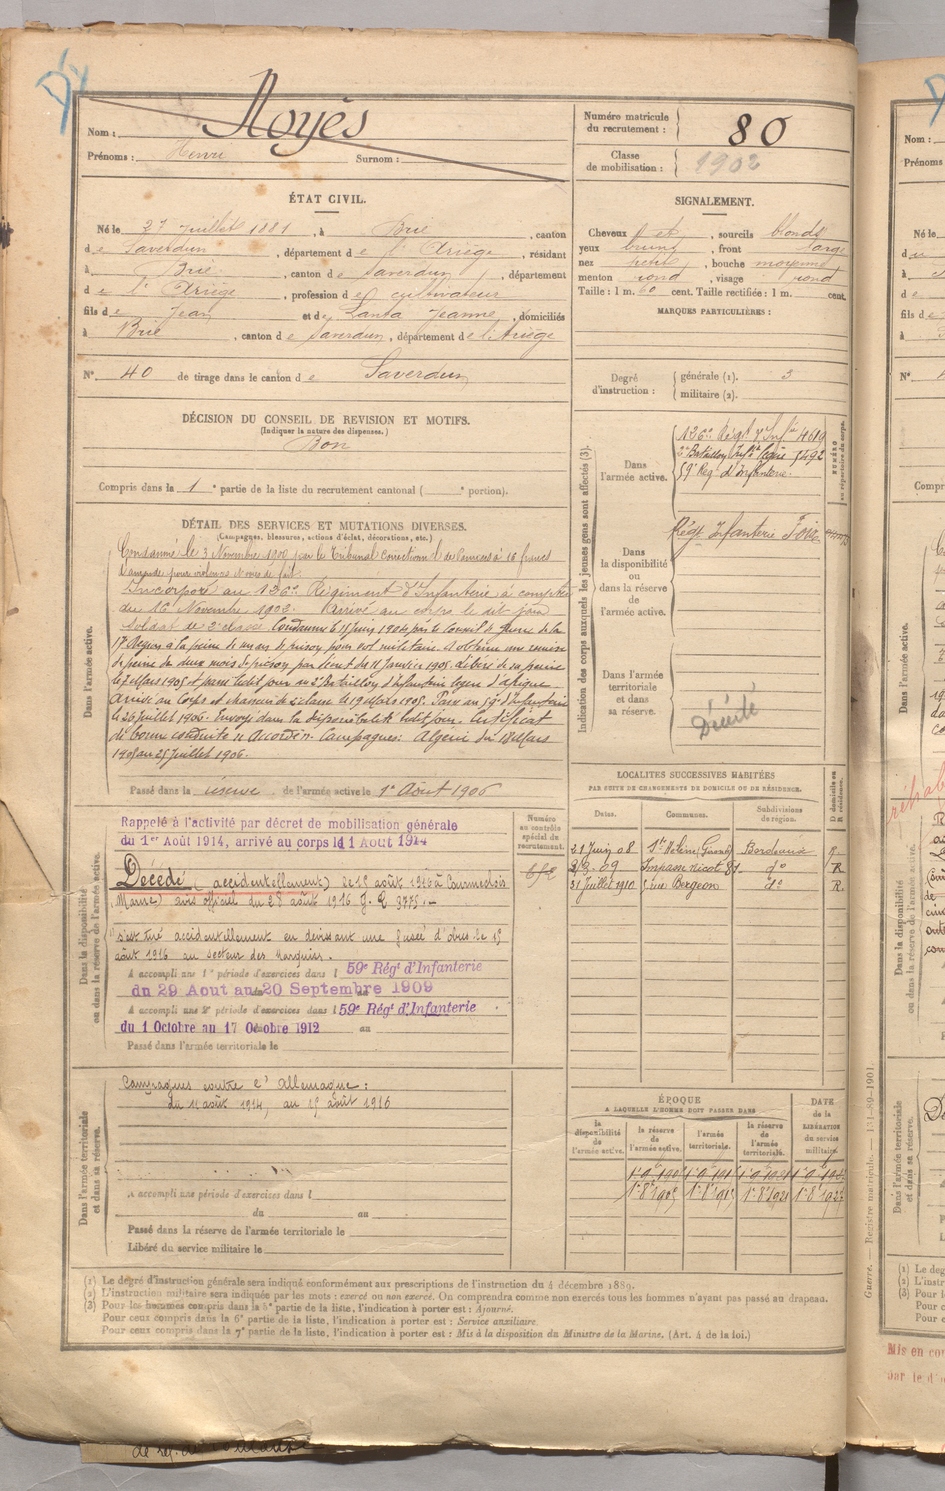 Nom : Noyès
Prénoms : Henri Surnom :
Numéro matricule du recrutement : 80
Classe de mobilisation : 1902
ÉTAT CIVIL.
Né le 27 Juillet 1881, à Brie, canton
de Saverdun, département de l'Ariège, résidant
à Brie, canton de Saverdun, département
de l'Ariège, profession de cultivateur
fils de Jean et de Lanta Jeanne, domiciliés
à Brie, canton de Saverdun, département de l'Ariège
N° 40 de tirage dans le canton de Saverdun
SIGNALEMENT.
Cheveux et, sourcils blonds
yeux bruns, front large
nez petit, bouche moyenne
menton rond, visage rond
Taille : 1 m. 60 cent. Taille rectifiée : 1 m. cent.
MARQUES PARTICULIÈRES :
Degré d'instruction : générale (1). 3
militaire (2).
DÉCISION DU CONSEIL DE REVISION ET MOTIFS.
(Indiquer la nature des dispenses.)
Bon
Compris dans la 1e partie de la liste du recrutement cantonal ( e portion).
DÉTAIL DES SERVICES ET MUTATIONS DIVERSES.
(Campagnes, blessures, actions d'éclat, décorations, etc.)
Dans l'armée active.
Condamné le 3 Novembre 1900 par le Tribunal Correctionnel de Pamiers à 16 francs
d'amende pour violences et voies de fait.
Incorporé au 126e Régiment d'Infanterie à compter
du 16 Novembre 1902. Arrivé au corps le dit jour
soldat de 2e classe. Condamné le 11 Juin 1904 par le Conseil de guerre de la
17e Région à la peine de un an de prison pour vol militaire. A obtenu une remise
de peine de deux mois de prison par décret du 11 Janvier 1905. Libéré de sa peine
le 2 Mars 1905 et passé ledit jour au 3e Bataillon d'Infanterie légère d'afrique
Arrivé au Corps et chasseur de 2e classe le 19 Mars 1905. Passé au 59e d'Infanterie
le 26 Juillet 1906. Envoyé dans la disponibilité ledit jour. Certificat
de bonne conduite Accordé. Campagnes: Algérie du 18 Mars
1905 au 25 Juillet 1906.
Passé dans la réserve de l'armée active le 1er Août 1906
Indication des corps auxquels les jeunes gens sont affectés (3).
Dans l'armée active.
126e Régt d'Infie 4619
3e Bataillon Infie légère 5492
59e Rég. d'infanterie.
NUMÉRO au répertoire du corps.
Dans la disponibilité ou dans la réserve de l'armée active.
Régt Infanterie Foix
Dans l'armée territoriale et dans sa réserve.
Décédé
Dans la disponibilité ou dans la réserve de l'armée active.
Rappelé à l'activité par décret de mobilisation générale
du 1er Août 1914, arrivé au corps le 11 Août 1914
Décédé (accidentellement) le 15 août 1916 à
(Marne) avis officiel du 28 août 1916 J. 3775.-
s'est tué accidentellement en dévissant une fusée d'obus le 15
août 1916 au secteur des Marquis.
A accompli une 1e période d'exercices dans l 59e Régt d'Infanterie
du 29 Aout au 20 Septembre 1909
A accompli une 2e période d'exercices dans l 59e Régt d'Infanterie
du 1 Octobre au 17 Octobre 1912 au
Passé dans l'armée territoriale le
Numéro au contrôle spécial du recrutement.
LOCALITÉS SUCCESSIVES HABITÉES
PAR SUITE DE CHANGEMENTS DE DOMICILE OU DE RÉSIDENCE.
Dates. Communes. Subdivisions de région. D domicile ou R résidence.
21 Juin 08 Ste Hélène (Gironde) Bordeaux R
09 Impasse nicot 81 do R
31 Juillet 1910 rue Bergeon do R
Dans l'armée territoriale et dans sa réserve.
Campagnes contre l'Allemagne :
du 11 août 1914, au 15 août 1916
A accompli une période d'exercices dans l
du au
Passé dans la réserve de l'armée territoriale le
Libéré du service militaire le
ÉPOQUE
A LAQUELLE L'HOMME DOIT PASSER DANS
la disponibilité de l'armée active. la réserve de l'armée active. l'armée territoriale. la réserve de l'armée territoriale.
DATE de la LIBÉRATION du service militaire.
(1) Le degré d'instruction générale sera indiqué conformément aux prescriptions de l'instruction du 4 décembre 1889.
(2) L'instruction militaire sera indiquée par les mots : exercé ou non exercé. On comprendra comme non exercés tous les hommes n'ayant pas passé au drapeau.
(3) Pour les hommes compris dans la 5e partie de la liste, l'indication à porter est : Ajourné.
Pour ceux compris dans la 6e partie de la liste, l'indication à porter est : Service auxiliaire.
Pour ceux compris dans la 7e partie de la liste, l'indication à porter est : Mis à la disposition du Ministre de la Marine. (Art. 4 de la loi.)
Guerre. — Registre matricule. — 131-89-1901.
Mis en co
par le d'